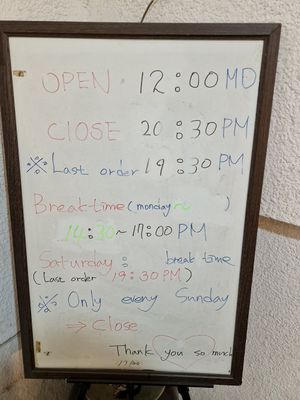 OPEN 12:00 MD
CLOSE 20:30 PM
※ Last order 19:30 PM
Break-time (monday ~ )
14:30 ~ 17:00 PM
Saturday : break time
(Last order 19:30 PM)
※ Only every Sunday
⇒ Close
Thank you so much